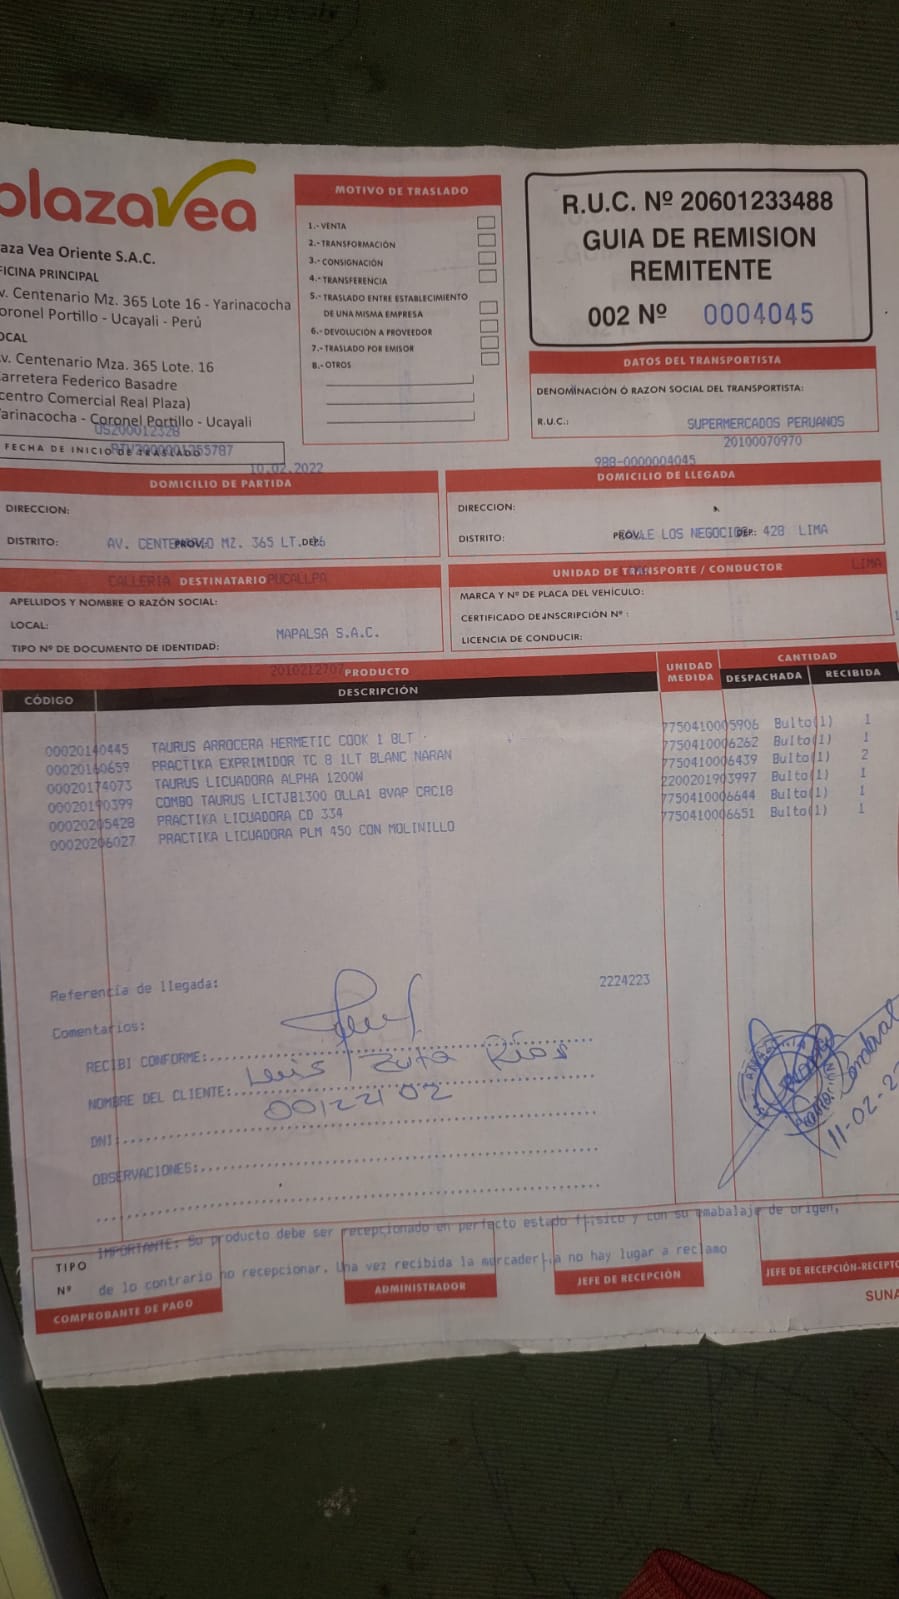 plazaVea
aza Vea Oriente S.A.C.
FICINA PRINCIPAL
v. Centenario Mz. 365 Lote 16 - Yarinacocha
oronel Portillo - Ucayali - Perú
OCAL
v. Centenario Mza. 365 Lote. 16
arretera Federico Basadre
centro Comercial Real Plaza)
arinacocha - Coronel Portillo - Ucayali
FECHA DE INICIO DE TRASLADO
10.02.2022
MOTIVO DE TRASLADO
1.- VENTA
2.- TRANSFORMACIÓN
3.- CONSIGNACIÓN
4.- TRANSFERENCIA
5.- TRASLADO ENTRE ESTABLECIMIENTO
DE UNA MISMA EMPRESA
6.- DEVOLUCIÓN A PROVEEDOR
7.- TRASLADO POR EMISOR
8.- OTROS
R.U.C. Nº 20601233488
GUIA DE REMISION
REMITENTE
002 Nº 0004045
DATOS DEL TRANSPORTISTA
DENOMINACIÓN O RAZON SOCIAL DEL TRANSPORTISTA:
R.U.C.: SUPERMERCADOS PERUANOS
20100070970
988-0000004045
DOMICILIO DE PARTIDA
DIRECCION:
DISTRITO: AV. CENTENARIO MZ. 365 LT. 16 PROV. DEP.
DOMICILIO DE LLEGADA
DIRECCION:
DISTRITO: PROV. LOS NEGOCIOS DEP.: 428 LIMA
CALLERIA DESTINATARIO PUCALLPA
APELLIDOS Y NOMBRE O RAZÓN SOCIAL:
LOCAL: MAPALSA S.A.C.
TIPO Nº DE DOCUMENTO DE IDENTIDAD:
UNIDAD DE TRANSPORTE / CONDUCTOR LIMA
MARCA Y Nº DE PLACA DEL VEHÍCULO:
CERTIFICADO DE INSCRIPCIÓN Nº :
LICENCIA DE CONDUCIR:
PRODUCTO UNIDAD MEDIDA CANTIDAD
CÓDIGO DESCRIPCIÓN DESPACHADA RECIBIDA
00020140445 TAURUS ARROCERA HERMETIC COOK 1 8LT 7750410005906 Bulto(1) 1
00020160659 PRACTIKA EXPRIMIDOR TC 8 1LT BLANC NARAN 7750410006262 Bulto(1) 1
00020174073 TAURUS LICUADORA ALPHA 1200W 7750410006439 Bulto(1) 2
00020190399 COMBO TAURUS LICTJB1300 OLLA18VAP CRC18 2200201903997 Bulto(1) 1
00020205428 PRACTIKA LICUADORA CD 334 7750410006644 Bulto(1) 1
00020206027 PRACTIKA LICUADORA PLM 450 CON MOLINILLO 7750410006651 Bulto(1) 1
Referencia de llegada: 2224223
Comentarios:
RECIBI CONFORME:
NOMBRE DEL CLIENTE: Luis Zuta Ríos
DNI: 00122102
OBSERVACIONES:
11-02-2
IMPORTANTE: Su producto debe ser recepcionado en perfecto estado físico y con su emabalaje de origen,
de lo contrario no recepcionar. Una vez recibida la mercadería no hay lugar a reclamo
TIPO
Nº
COMPROBANTE DE PAGO
ADMINISTRADOR
JEFE DE RECEPCIÓN
JEFE DE RECEPCIÓN-RECEPTO
SUNA